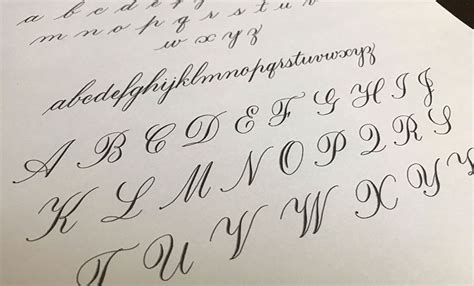 a b c d e f g h i j k l
m n o p q r s t u v
w x y z
abcdefghijklmnopqrstuvwxyz
A B C D E F G H I J
K L M N O P Q R S
T U V W X Y